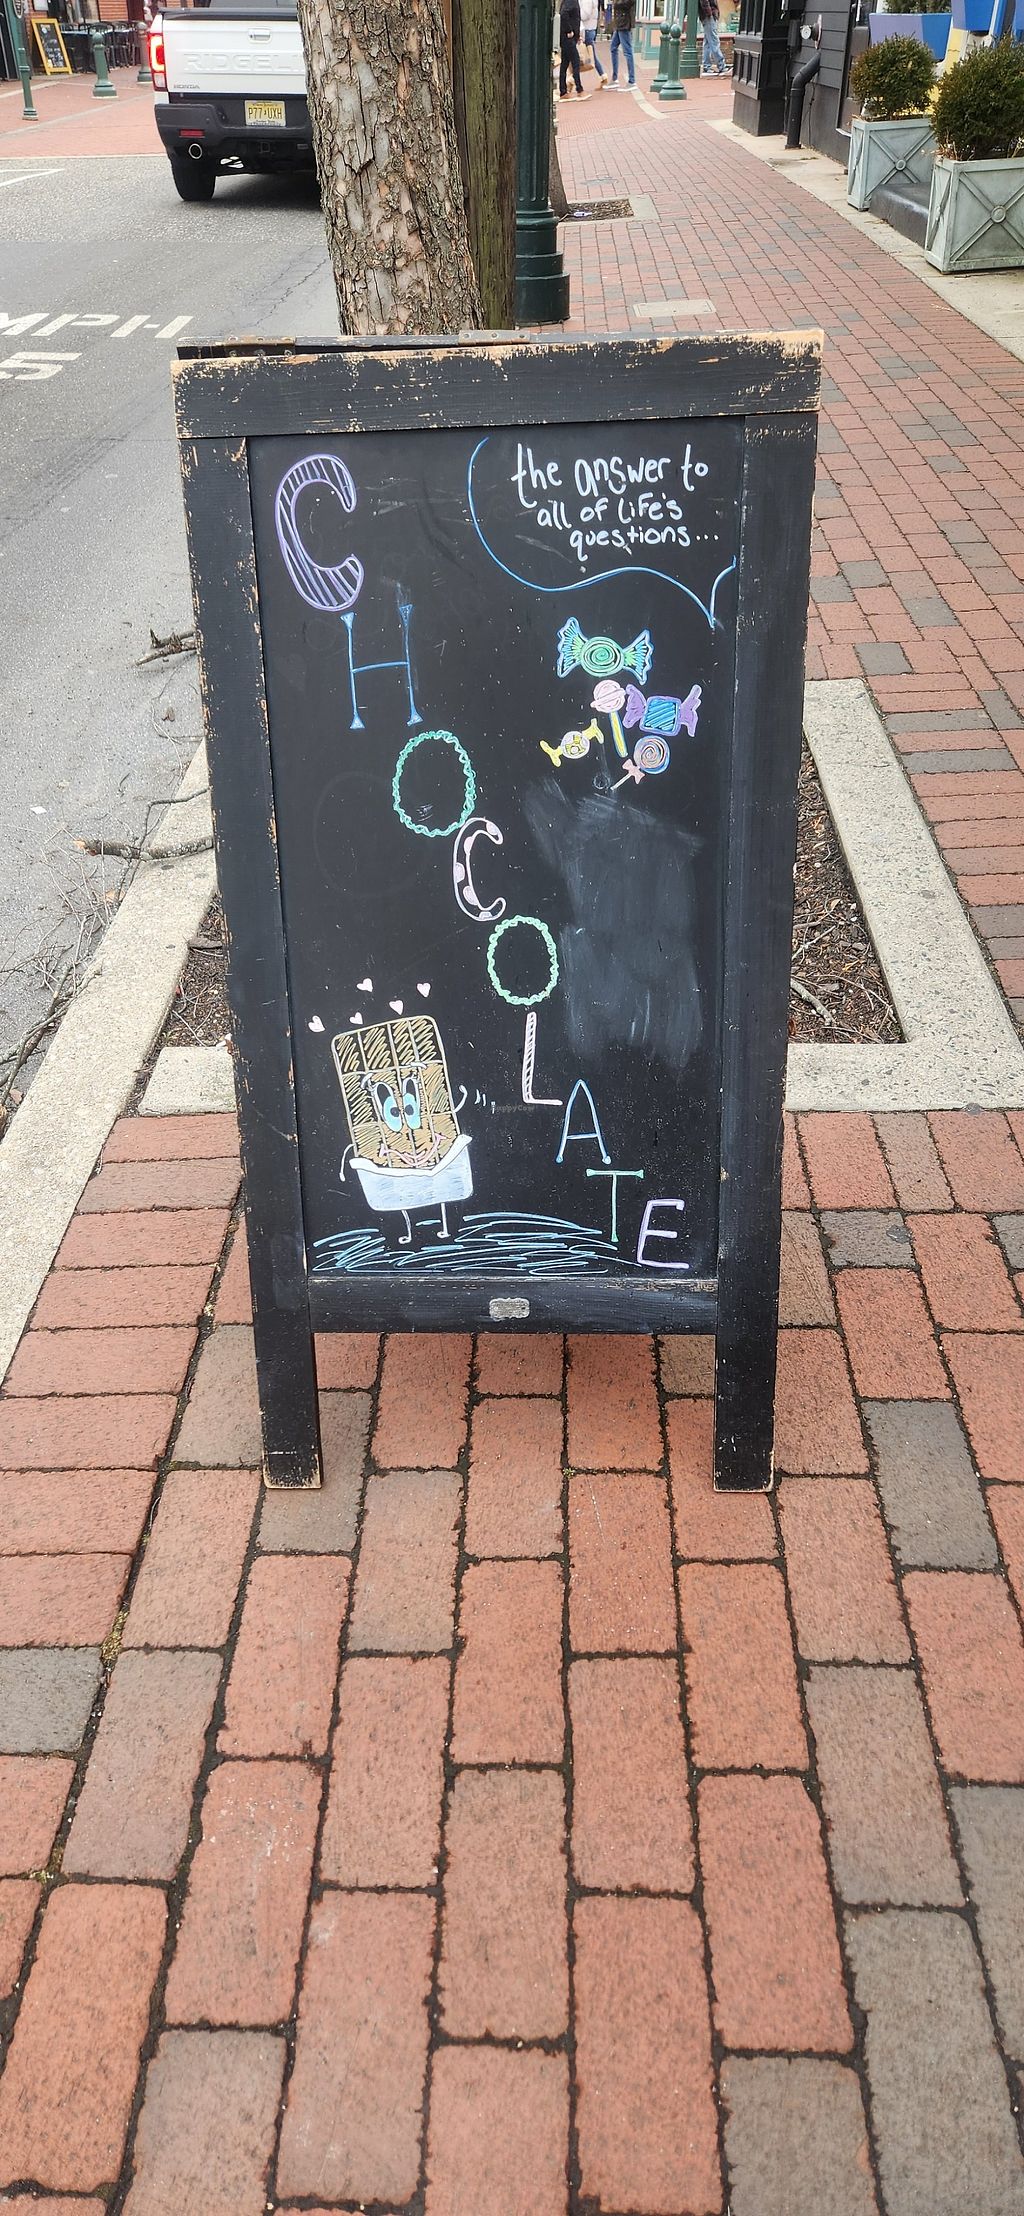 the answer to
all of life's
questions...
CHOCOLATE
RIDGEL
HONDA
P77UXH
MPH
5
HappyCow